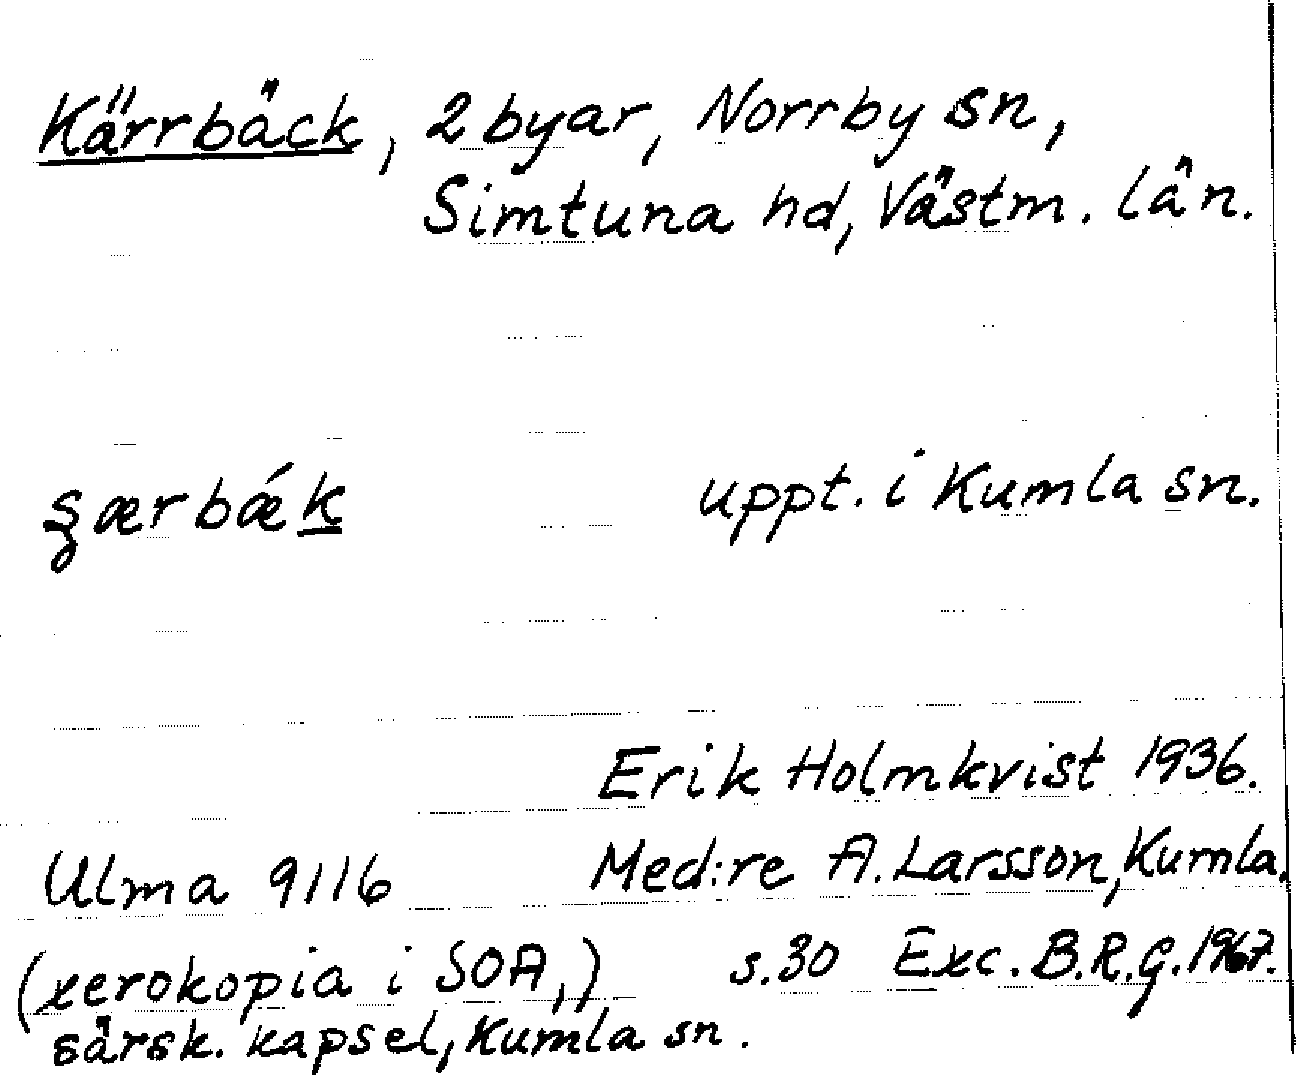 Kärrbäck, 2 byar, Norrby sn,
Simtuna hd, Västm. län.
uppt. i Kumla sn.
Erik Holmkvist 1936.
Ulma 9116 Med:re A. Larsson, Kumla.
(xerokopia i SOA,) s.30 Exc. B.R.G. 1967.
särsk. kapsel, Kumla sn.